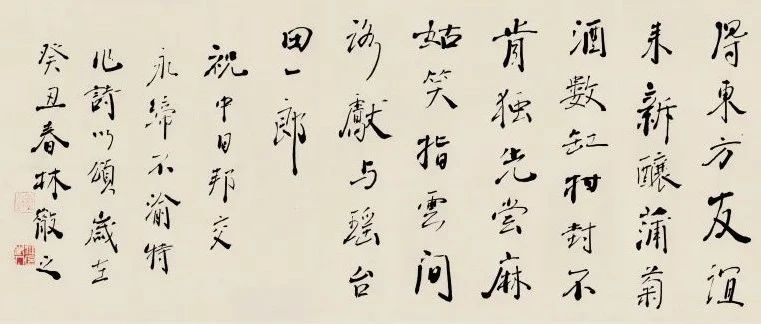 得東方友誼
来新釀蒲萄
酒數缸封不
肯独先尝麻
姑笑指雲间
路獻与瑶台
田一郎
祝中日邦交
永締不渝特
作詩以頌歲在
癸丑春林散之